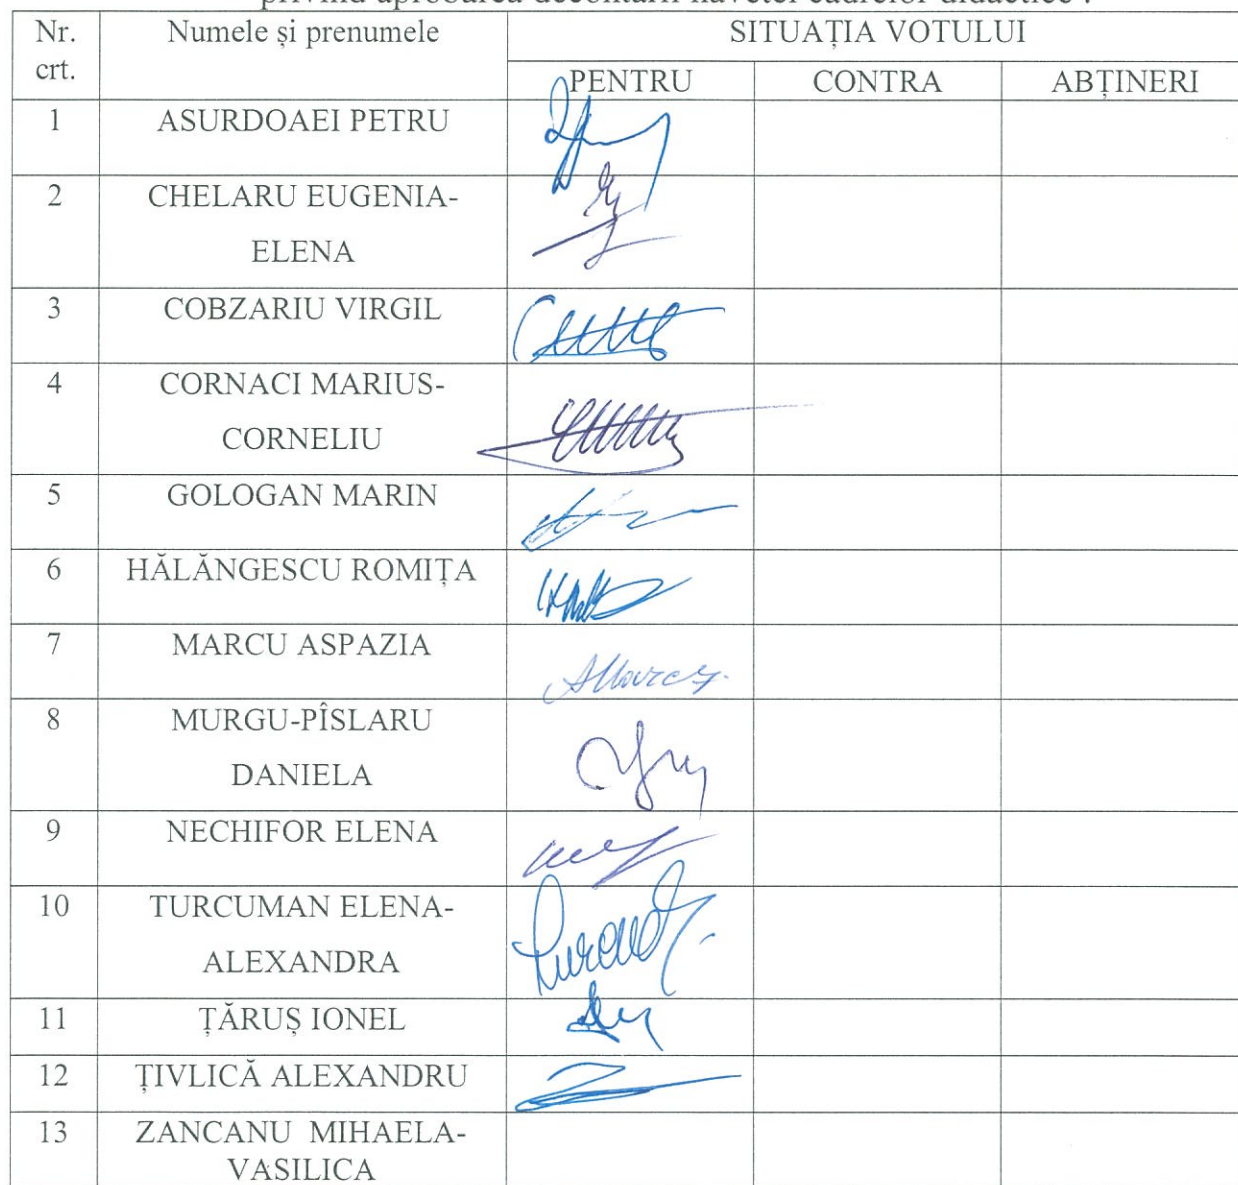 privind aprobarea decontării navetei cadrelor didactice .
Nr. crt. Numele și prenumele SITUAȚIA VOTULUI
PENTRU CONTRA ABȚINERI
1 ASURDOAEI PETRU
2 CHELARU EUGENIA-
ELENA
3 COBZARIU VIRGIL
4 CORNACI MARIUS-
CORNELIU
5 GOLOGAN MARIN
6 HĂLĂNGESCU ROMIȚA
7 MARCU ASPAZIA
8 MURGU-PÎSLARU
DANIELA
9 NECHIFOR ELENA
10 TURCUMAN ELENA-
ALEXANDRA
11 ȚĂRUȘ IONEL
12 ȚIVLICĂ ALEXANDRU
13 ZANCANU MIHAELA-
VASILICA